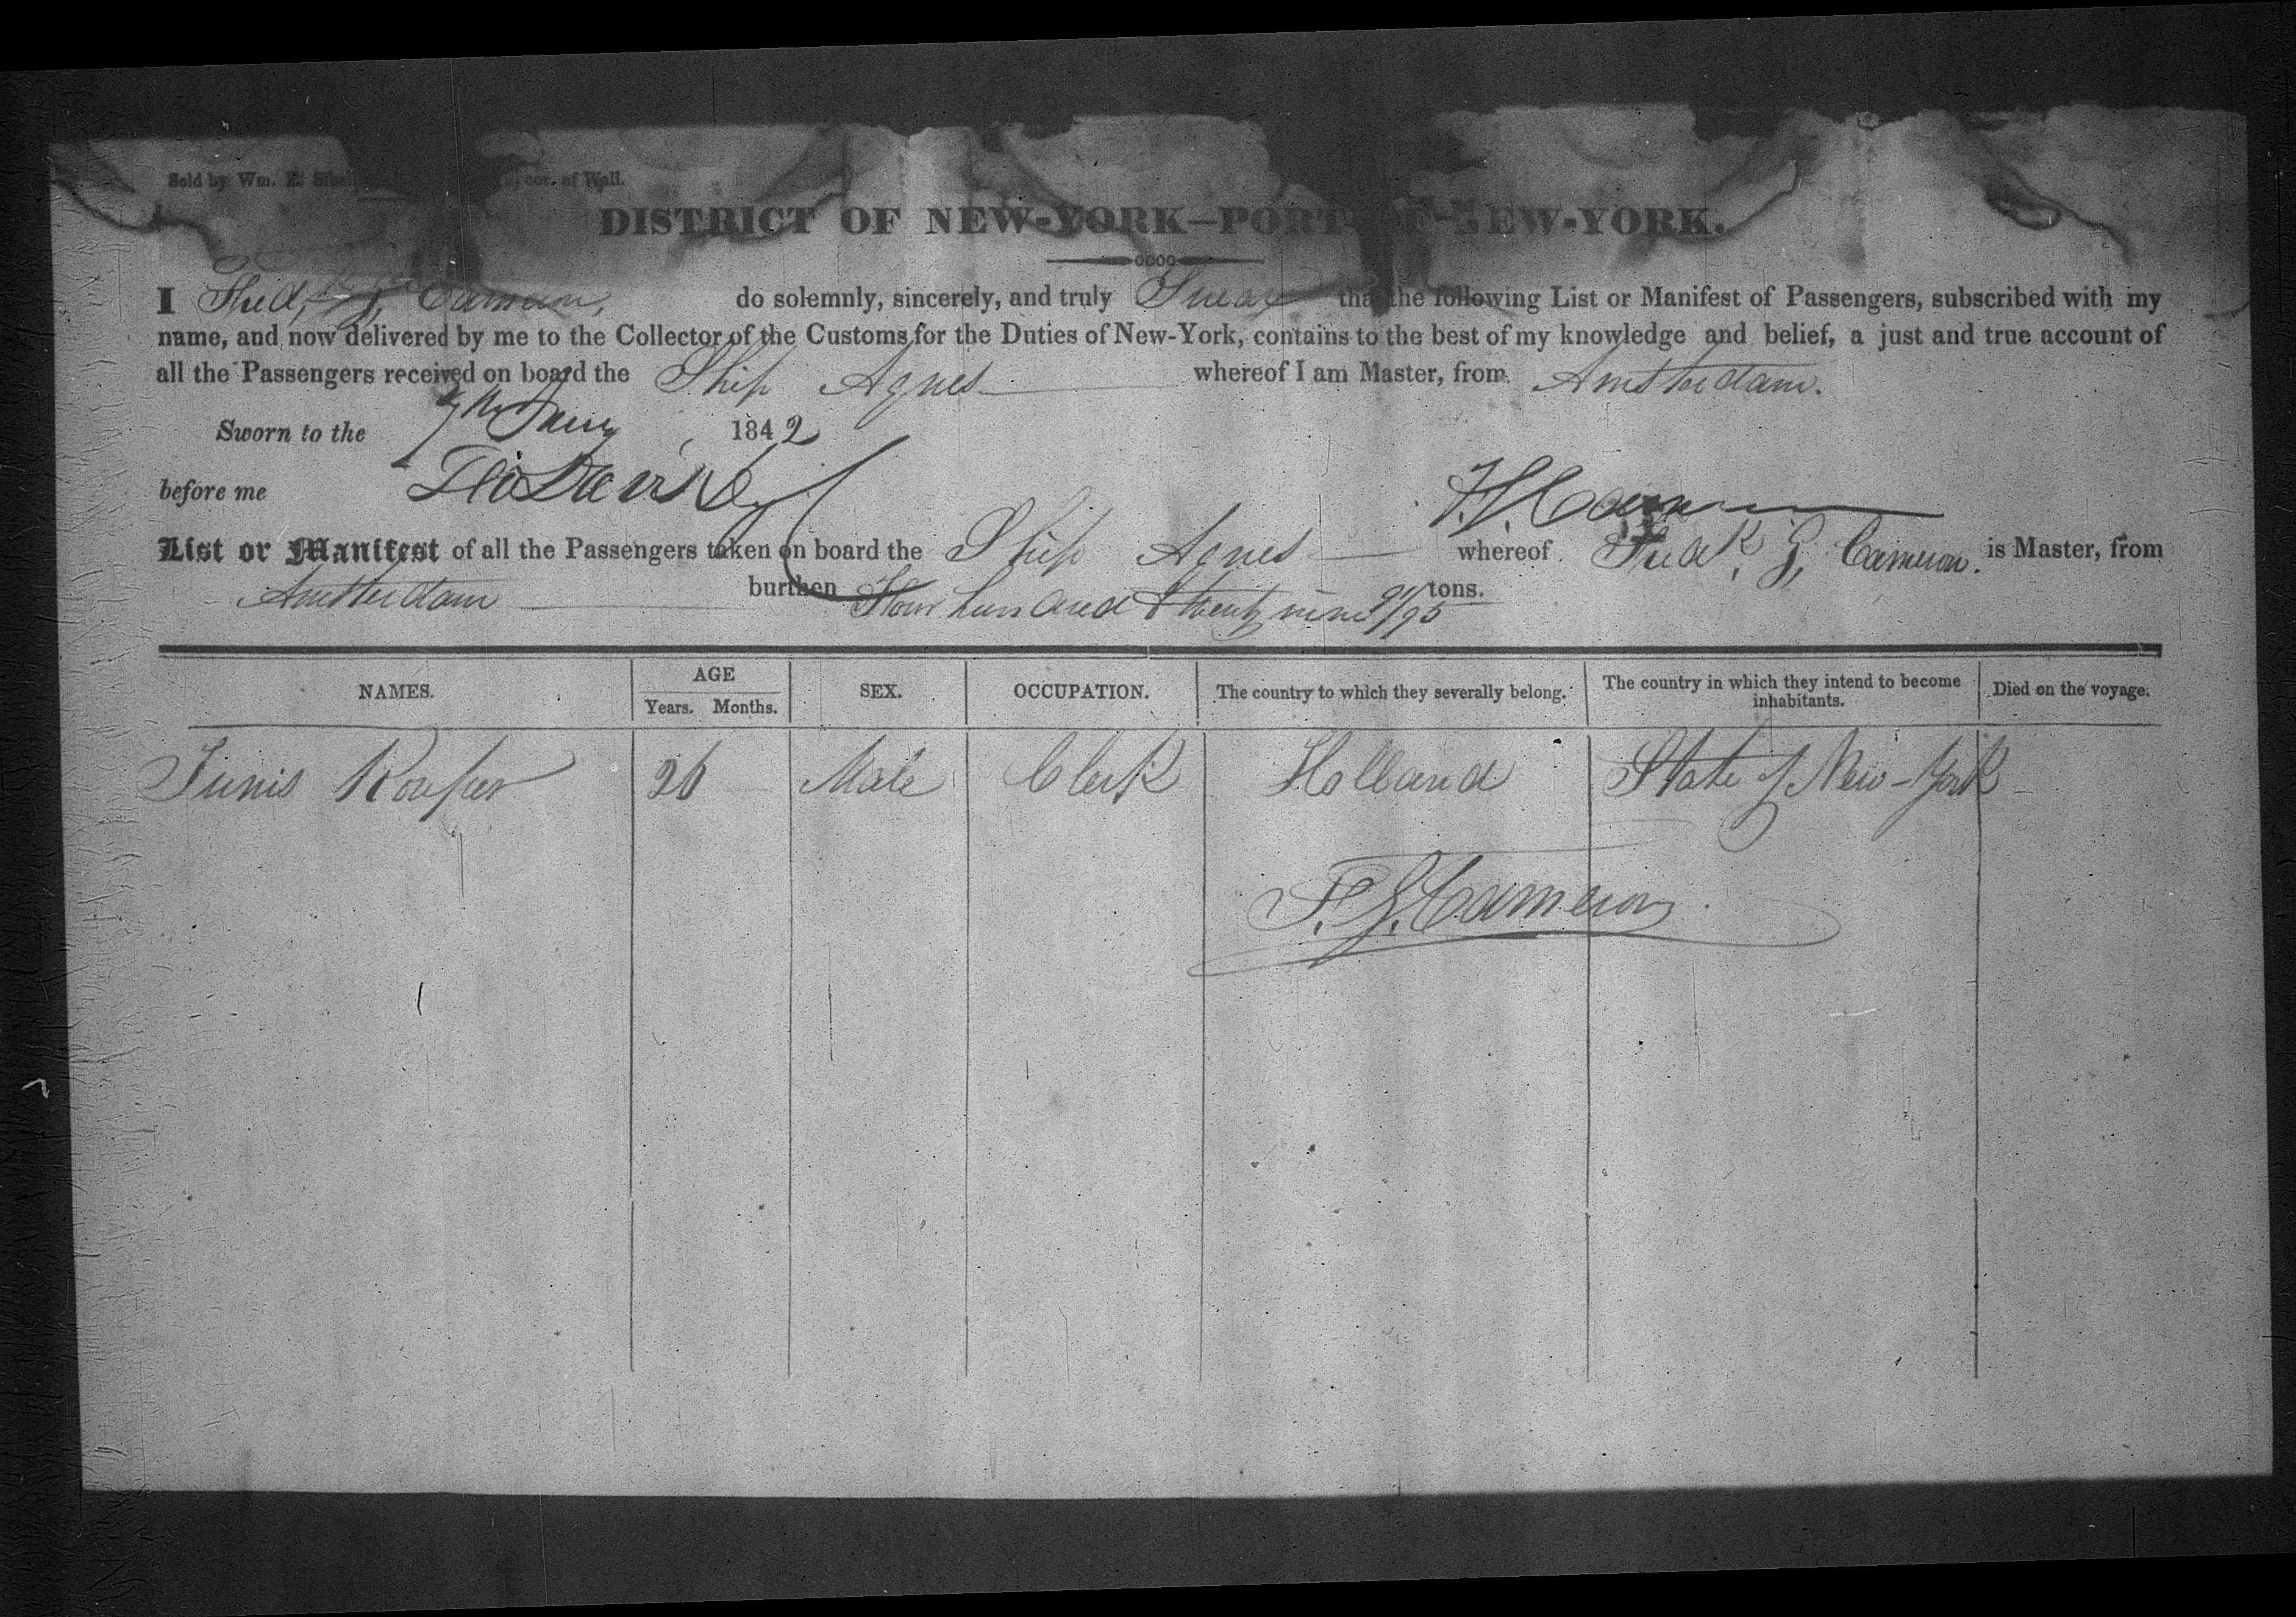 Sold by Wm. cor. of Wall.
DISTRICT OF NEW-YORK—PORT OF NEW-YORK.
I Fred,k G, Cameron, do solemnly, sincerely, and truly Swear that the following List or Manifest of Passengers, subscribed with my
name, and now delivered by me to the Collector of the Customs for the Duties of New-York, contains to the best of my knowledge and belief, a just and true account of
all the Passengers received on board the Ship Agnes whereof I am Master, from Amsterdam.
Sworn to the 1842
before me
F.G. Cameron
List or Manifest of all the Passengers taken on board the Ship Agnes whereof Fredk. G, Cameron. is Master, from
Amsterdam burthen Four hundred & twenty nine 91/95 tons.
NAMES. AGE Years. Months. SEX. OCCUPATION. The country to which they severally belong. The country in which they intend to become inhabitants. Died on the voyage.
Tunis 26 Male Clerk Holland State of New-York
F. G. Cameron